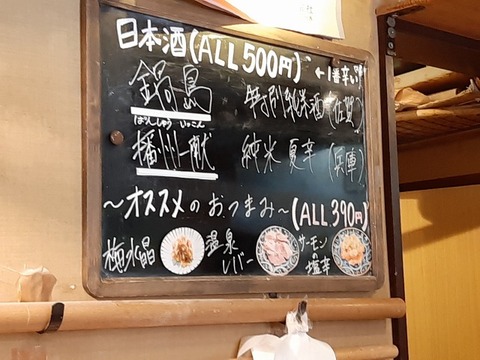 日本酒(ALL 500円)
←1番辛い!
鍋島 特別純米酒(佐賀)
ばんしゅう いっこん
播州一献 純米 夏辛(兵庫)
～オススメのおつまみ～(ALL 390円)
梅水晶
温泉レバー
サーモンの塩辛